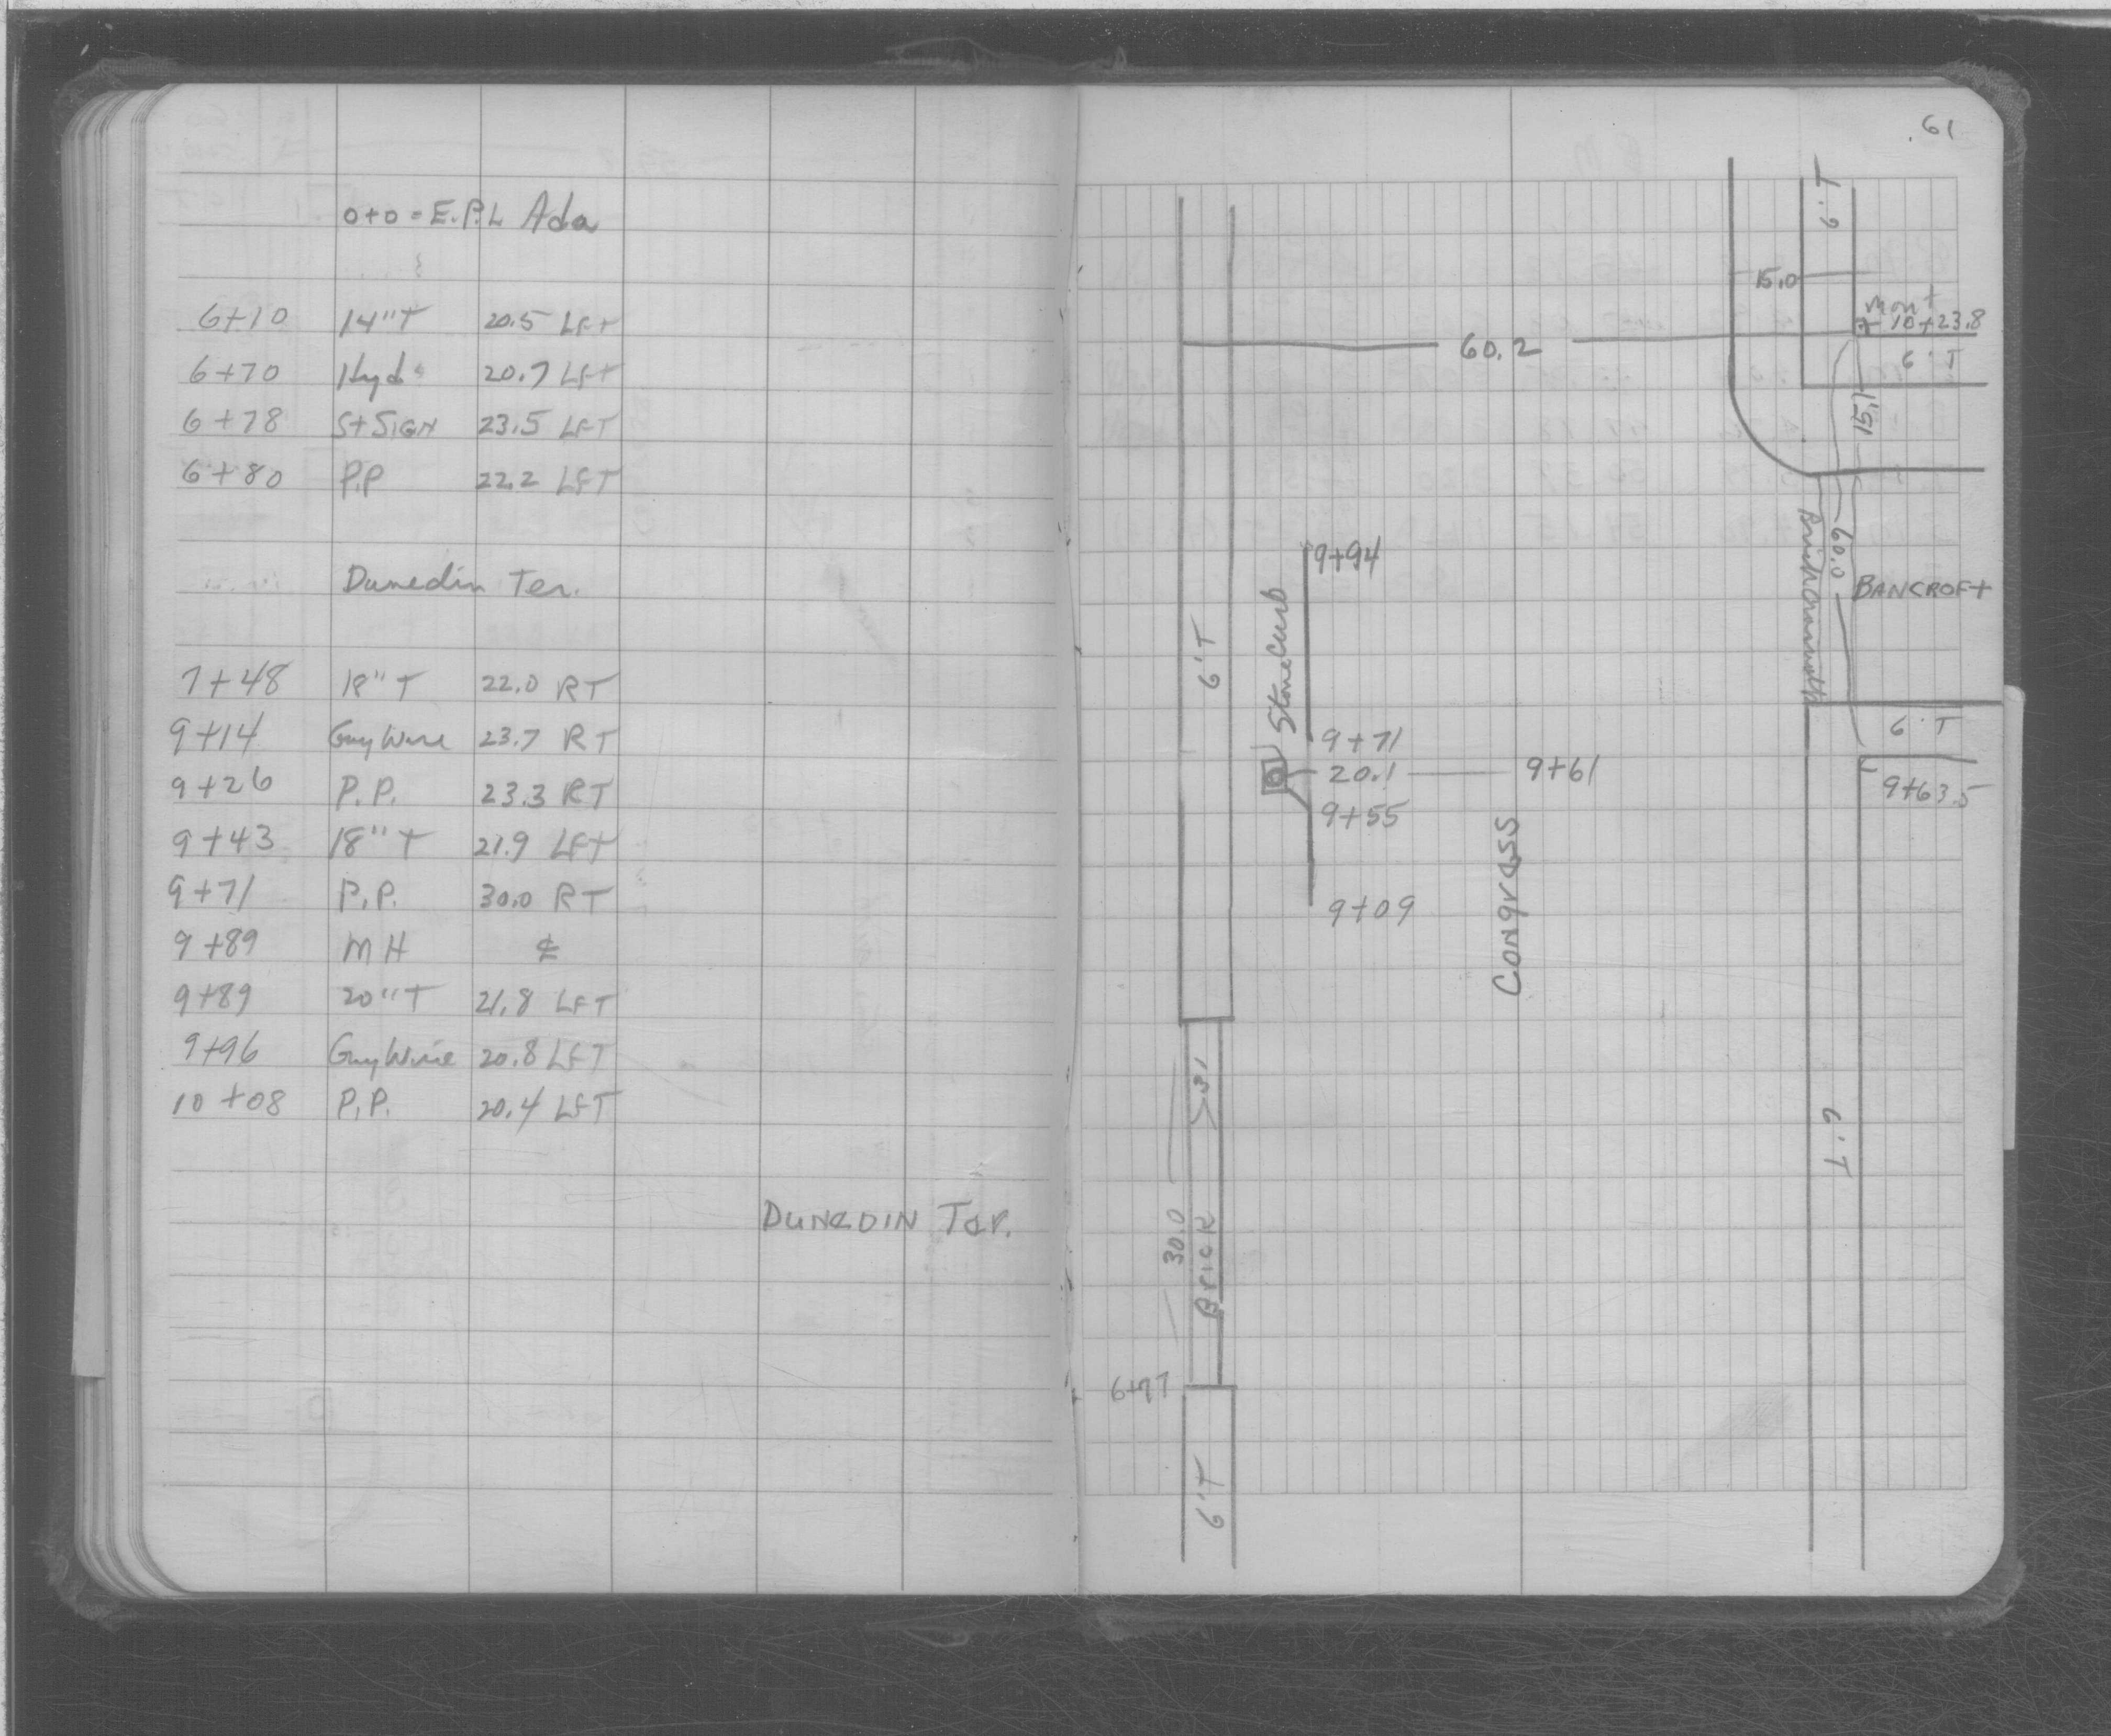 0+0 = E.P.L Ada
6+10 14"T 20.5 LFT
6+70 Hyd. 20.7 LFT
6+78 St SIGN 23.5 LFT
6+80 P.P 22.2 LFT
Dunedin Ter.
7+48 18"T 22.0 RT
9+14 Guy Wire 23.7 RT
9+26 P.P. 23.3 RT
9+43 18"T 21.9 LFT
9+71 P.P. 30.0 RT
9+89 MH ⅊
9+89 20"T 21.8 LFT
9+96 Guy Wire 20.8 LFT
10+08 P.P. 20.4 LFT
DUNEDIN Ter.
61
6'T
15.0
Mon't
10+23.8
60.2
6'T
15.1
9+94
60.0
BANCROFT
Stone Curb
6'T
9+71
6'T
20.1
9+61
9+63.5
9+55
Congress
9+09
6'T
30.0
Brick
6+77
6'T